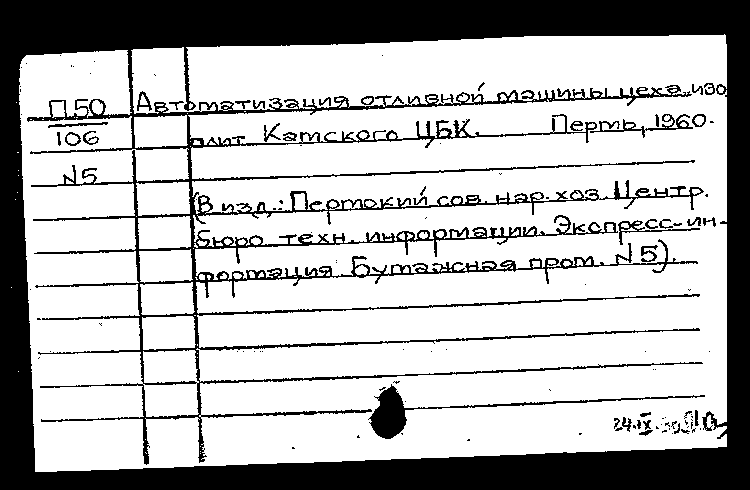 П.50 Автоматизация отливной машины цеха изо
106 плит Камского ЦБК. Пермь, 1960.
N5
(В изд.: Пермский сов. нар. хоз. Центр.
бюро техн. информации. Экспресс-ин-
формация Бумажная пром. N5).
24.IX.